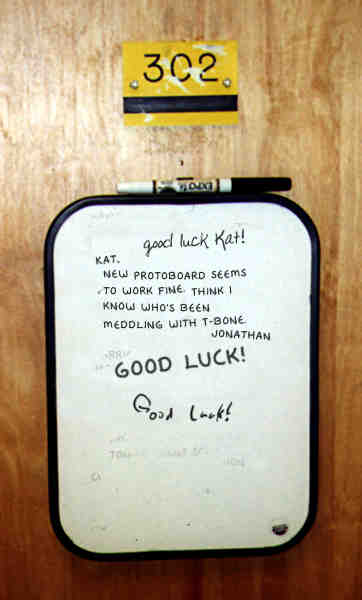 302
EXPO
good luck Kat!
KAT.
NEW PROTOBOARD SEEMS
TO WORK FINE. THINK I
KNOW WHO'S BEEN
MEDDLING WITH T-BONE
JONATHAN
GOOD LUCK!
Good Luck!